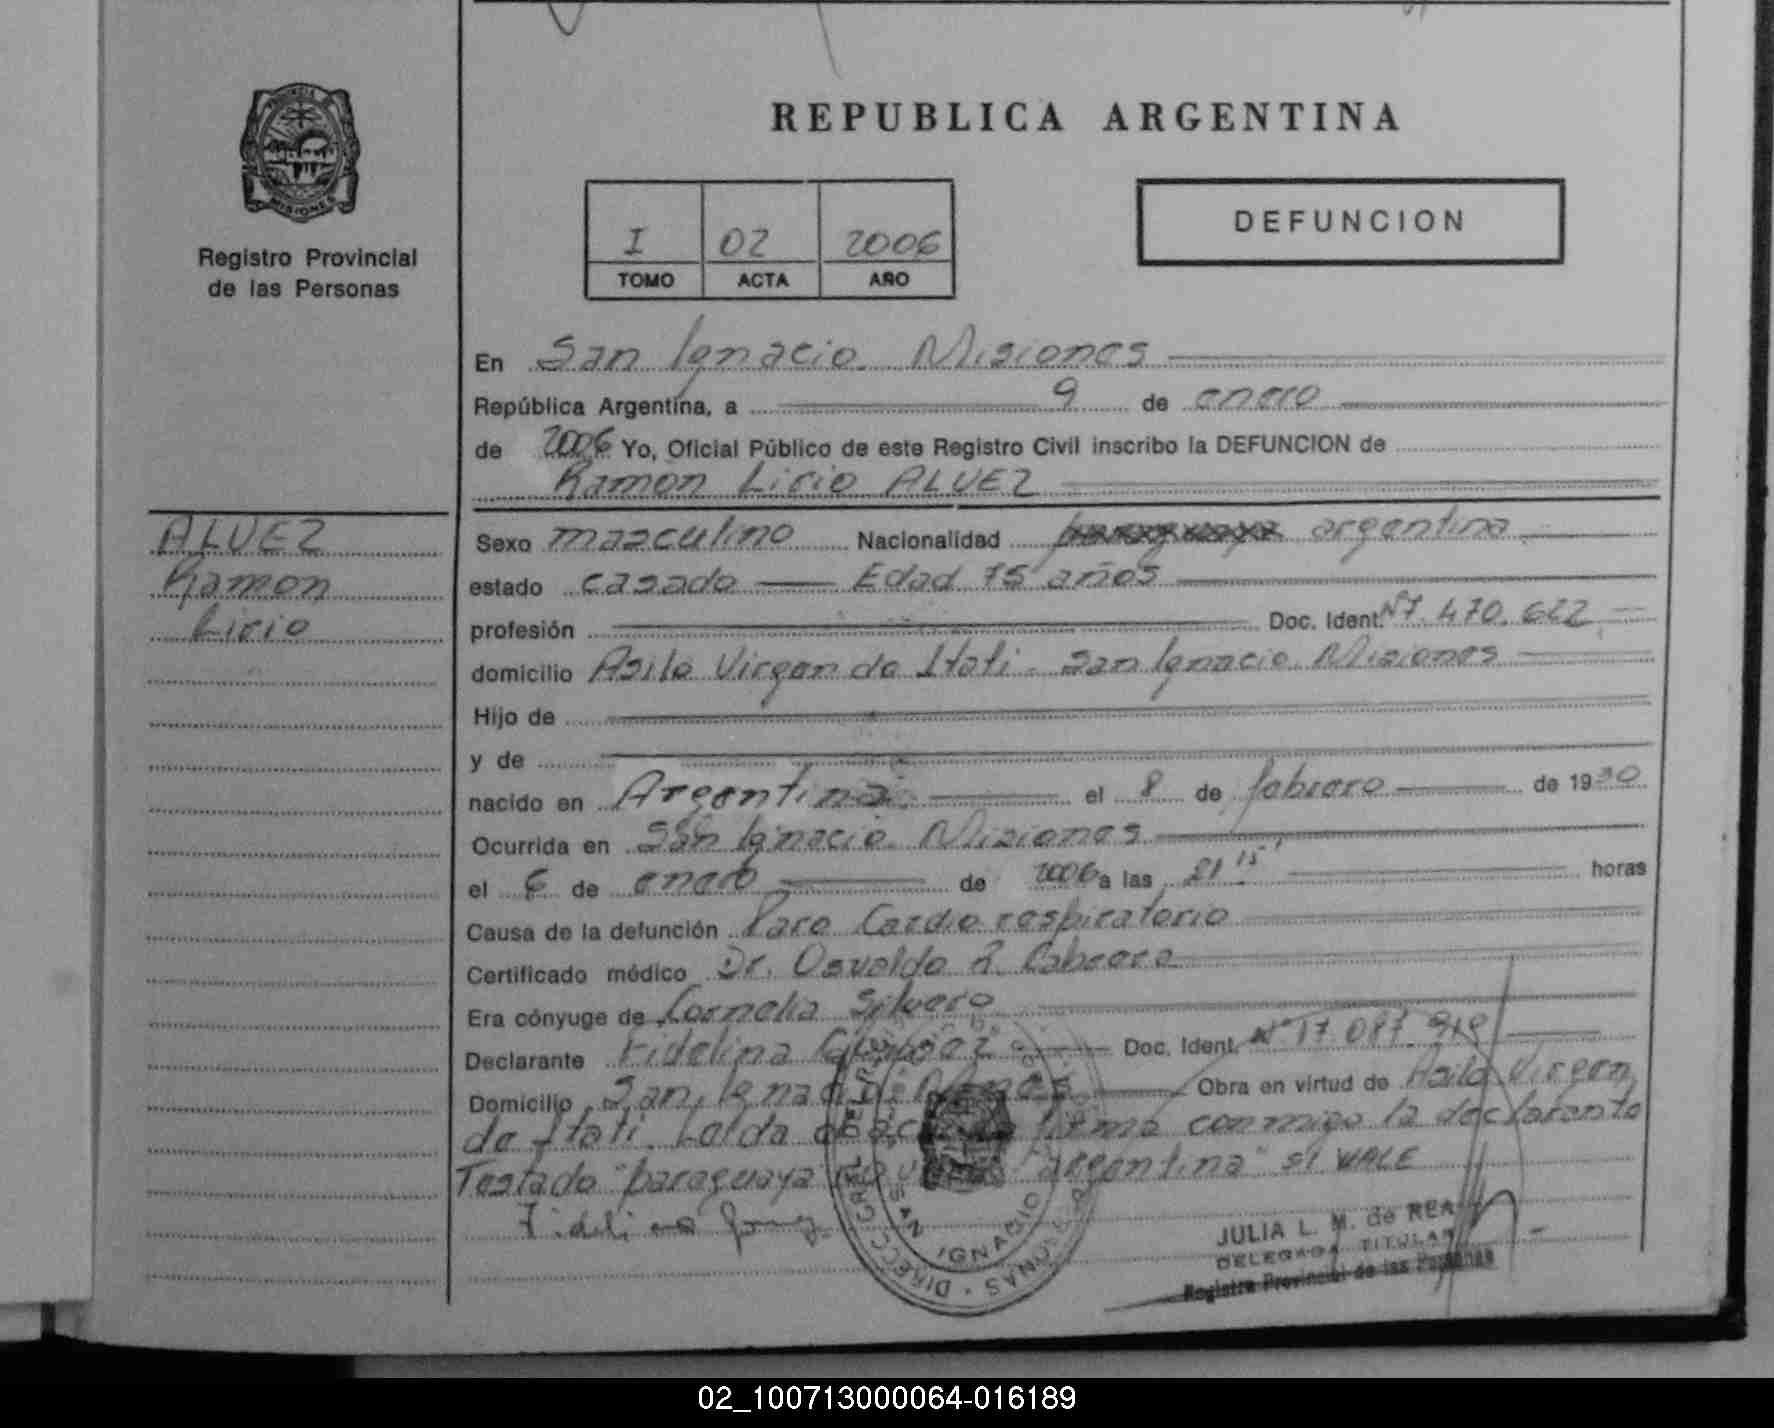 REPUBLICA ARGENTINA
PROVINCIA DE
MISIONES
Registro Provincial
de las Personas
I 02 2006
TOMO ACTA AÑO
DEFUNCION
En San Ignacio. Misiones
República Argentina, a 9 de enero
de 2006 Yo, Oficial Público de este Registro Civil inscribo la DEFUNCION de
Ramon Lirio ALVEZ
ALVEZ
Ramon
Lirio
Sexo masculino Nacionalidad argentina
estado casado Edad 75 años
profesión Doc. Ident. Nº 7.470.622
domicilio Asilo Virgen de Itati. San Ignacio Misiones
Hijo de
y de
nacido en Argentina. el 8 de febrero de 1930
Ocurrida en San Ignacio. Misiones
el 6 de enero de 2006 a las 21 15' horas
Causa de la defunción Paro Cardio respiratorio
Certificado médico Dr. Osvaldo R. Cabrera
Era cónyuge de Cornelia Silvero
Declarante Fidelina Doc. Ident. Nº 17.087.
Domicilio San Ignacio Obra en virtud de Asilo Virgen
de Itati. Leida el acta la firma conmigo la declarante
Testado "paraguaya" "argentina" SI VALE
JULIA L. M. de REA
DELEGADA TITULAR
Registro Provincial de las Personas
SAN IGNACIO
02_100713000064-016189